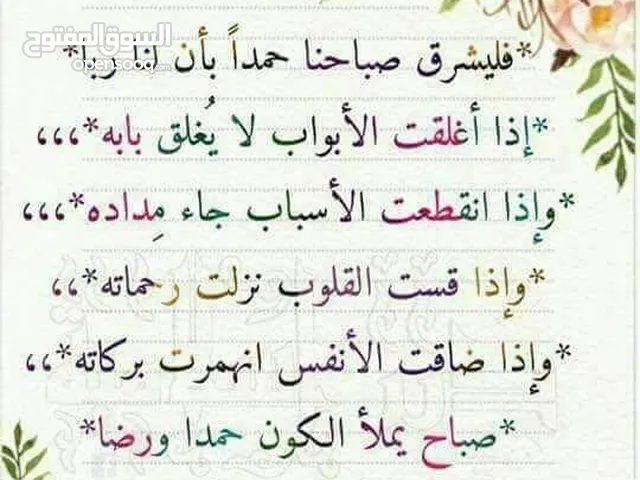 السوق المفتوح
opensooq.com
*فليشرق صباحنا حمداً بأن لنا رباً*
*إذا أغلقت الأبواب لا يُغلق بابه*،،،
*وإذا انقطعت الأسباب جاء مِداده*،،،
*وإذا قست القلوب نزلت رحماته*،،
*وإذا ضاقت الأنفس انهمرت بركاته*،،
*صباح يملأ الكون حمدا ورضا*